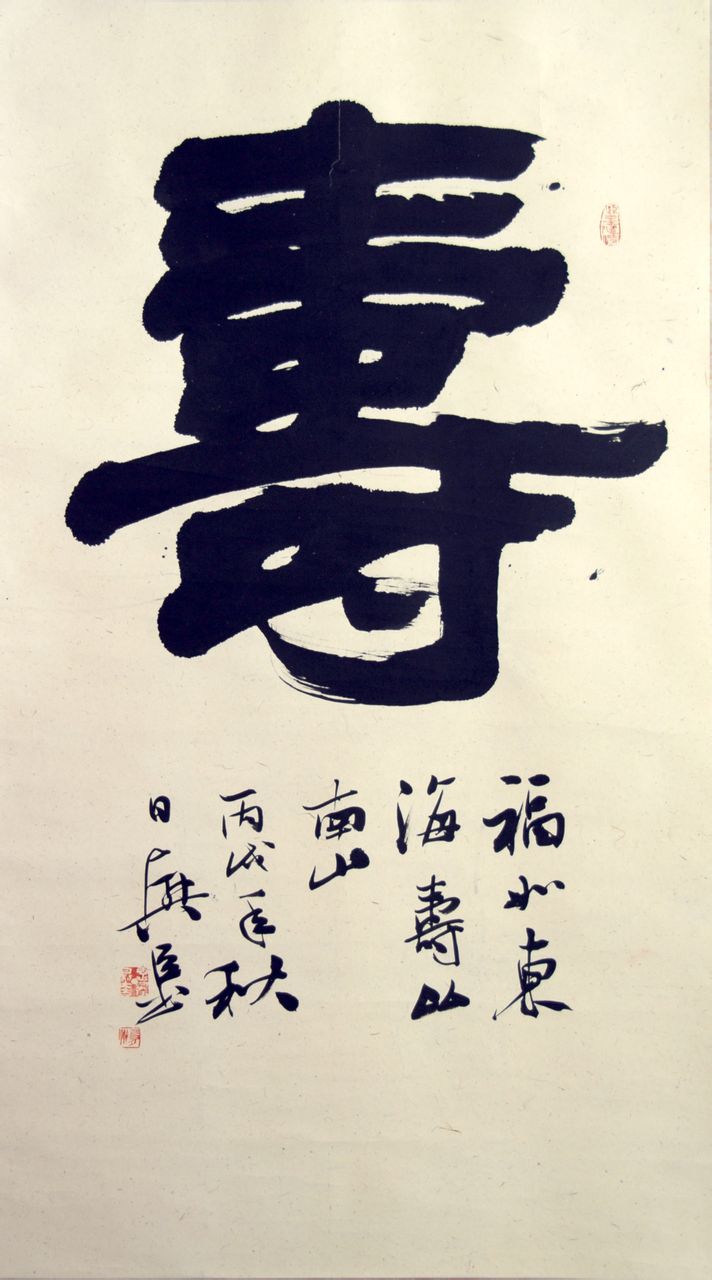 壽
福如東
海壽比
南山
丙戌年秋
日